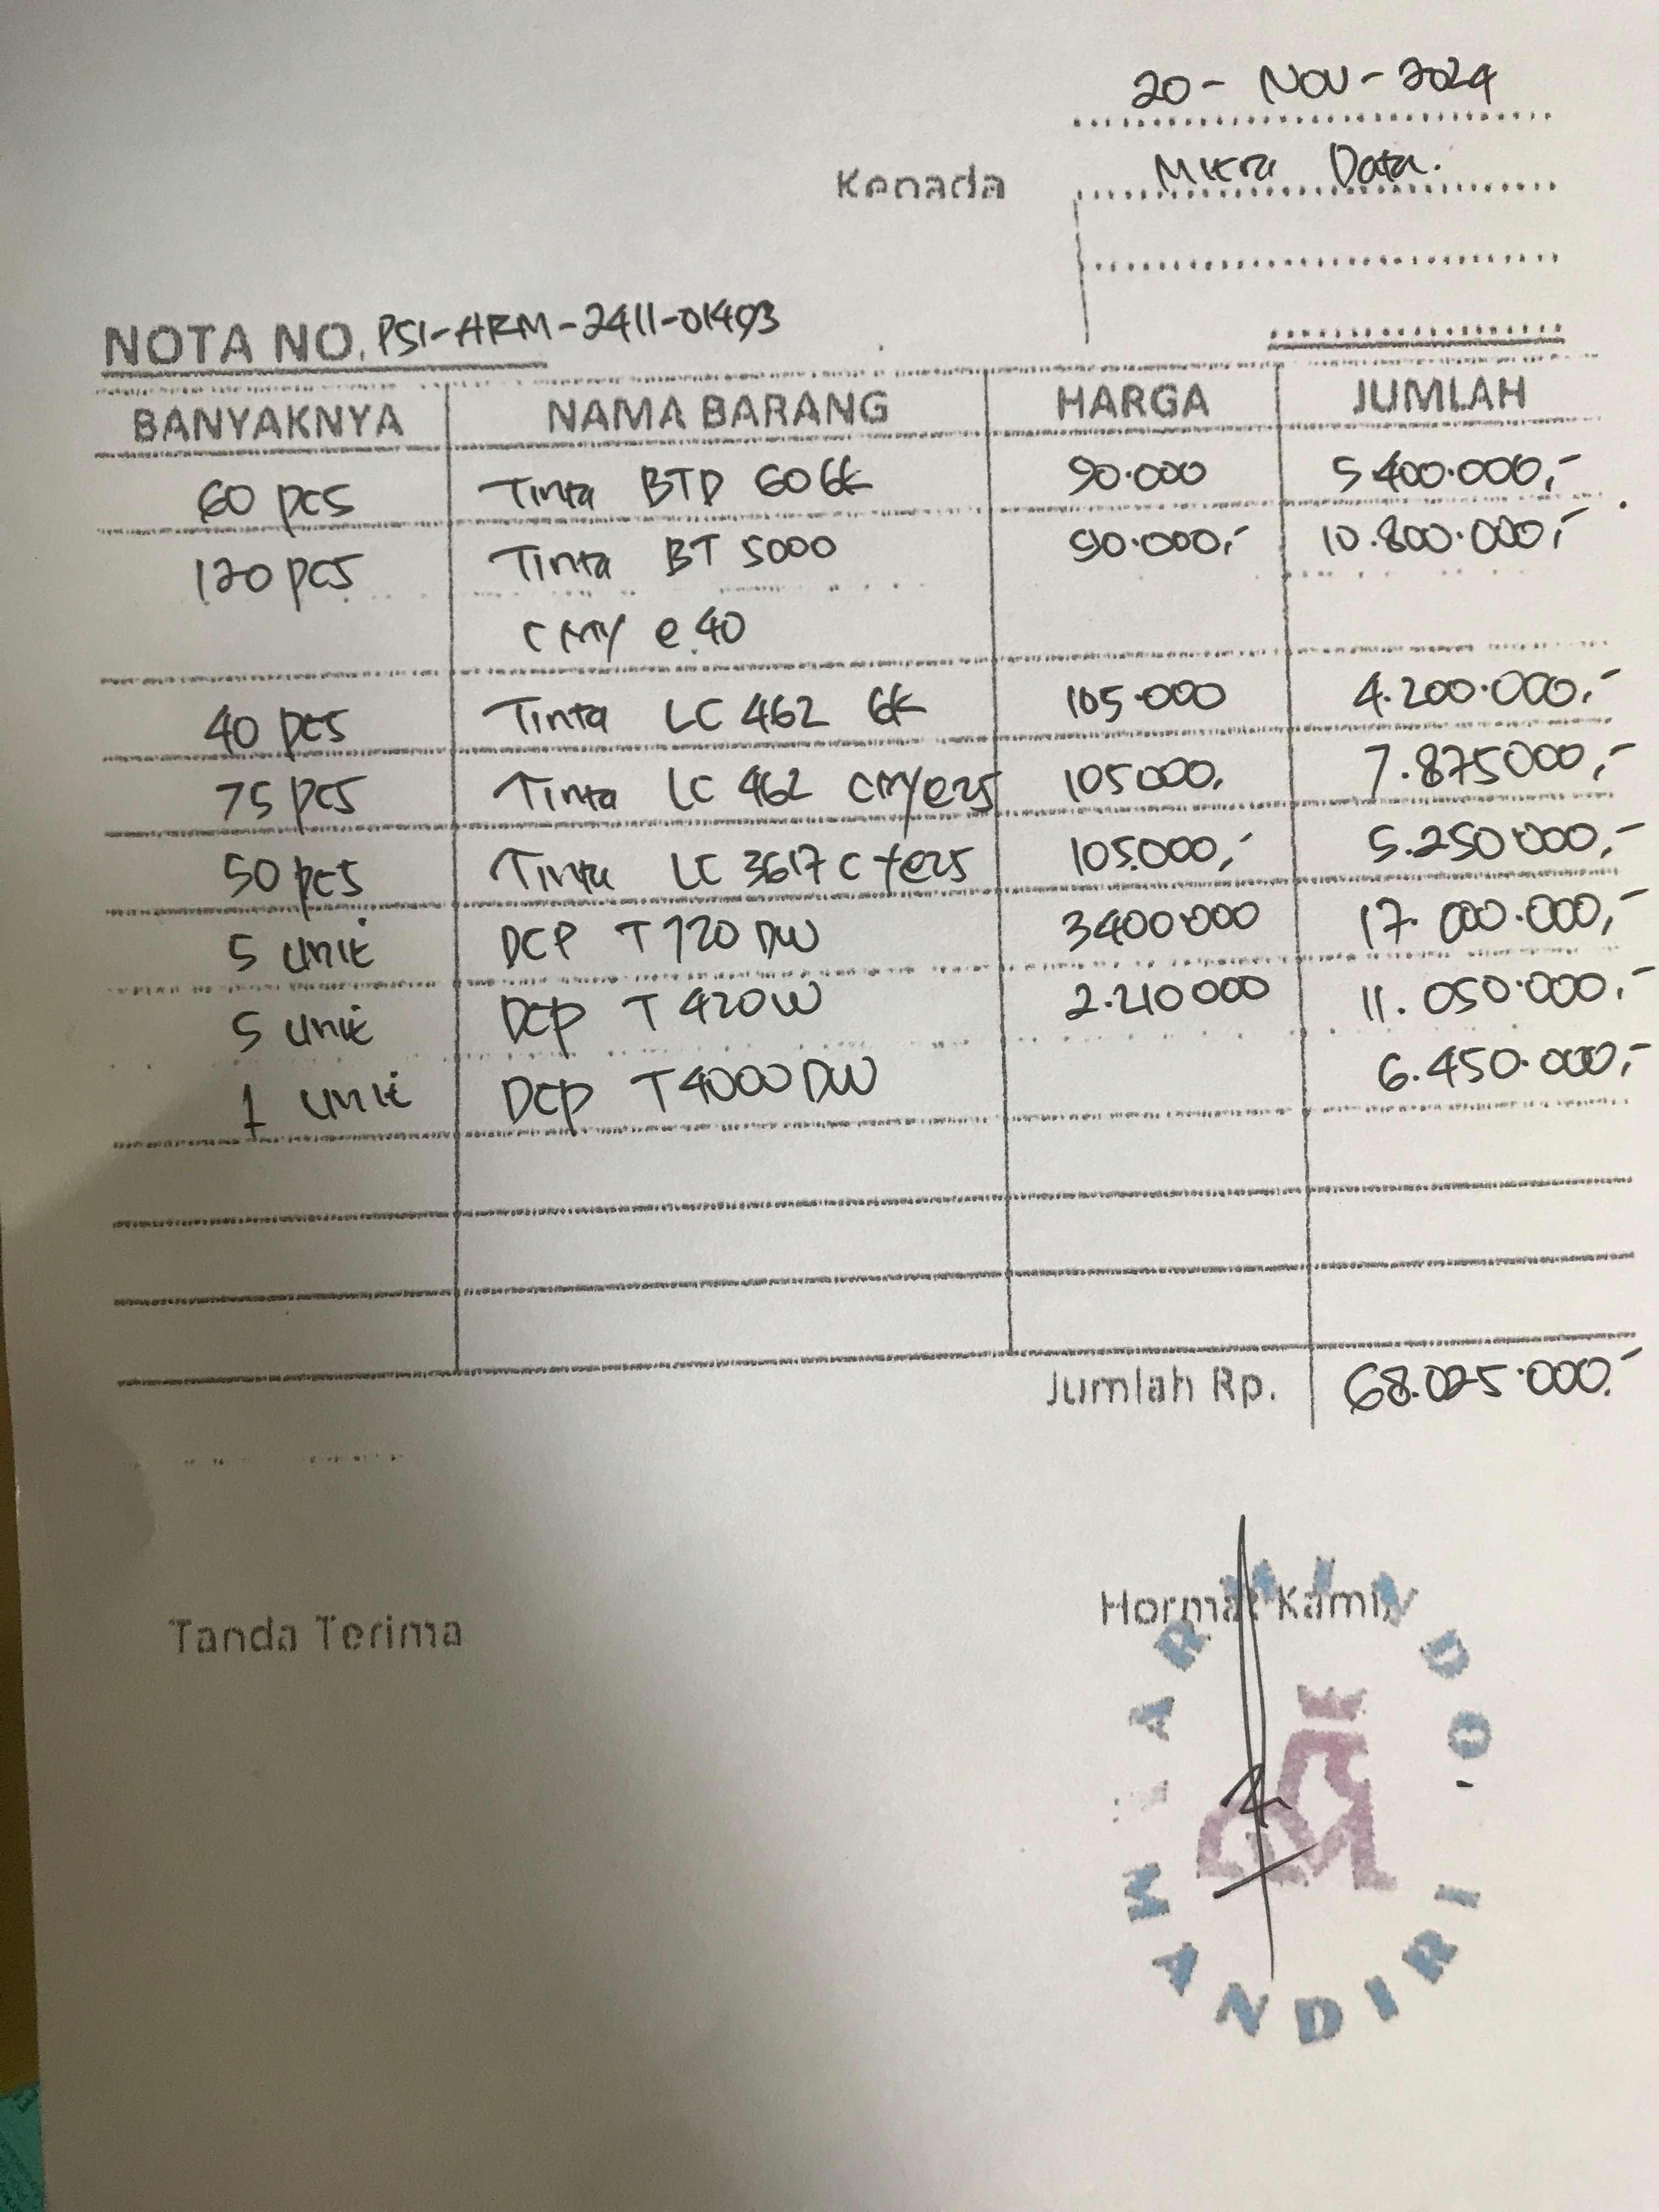 20 - NOV - 2024
Kepada Mitra Data.
NOTA NO. PSI-ARM-2411-01493
BANYAKNYA NAMA BARANG HARGA JUMLAH
60 pcs Tinta BTD 60 BK 90.000 5 400.000,-
120 pcs Tinta BT 5000 90.000,- 10.800.000,-
CMY @ 40
40 pcs Tinta LC 462 BK 105.000 4.200.000,-
75 pcs Tinta LC 462 CMY@25 105000, 7.875000,-
50 pcs Tinta LC 3617 C Y@25 105.000,- 5.250000,-
5 unit DCP T720 DW 3400.000 17.000.000,-
5 unit DCP T420W 2.210000 11.050.000,-
1 unit DCP T4000 DW 6.450.000,-
Jumlah Rp. 68.025.000.-
Tanda Terima Hormat Kami,
MANDIRI